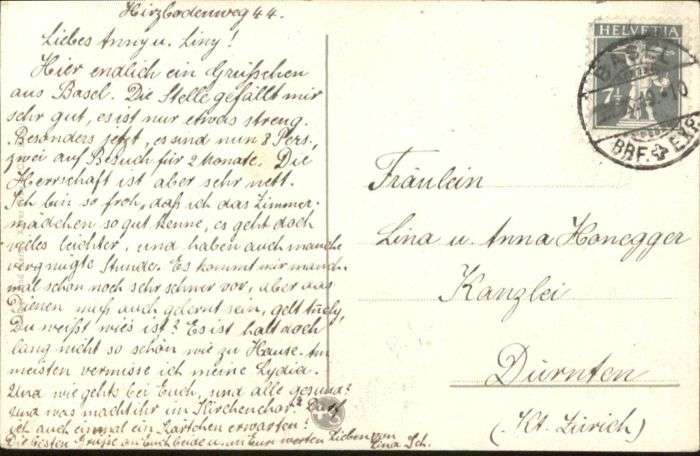 Hirzbodenweg 44.
Liebes Anny u. Liny!
Hier endlich ein Grüßchen
aus Basel. Die Stelle gefällt mir
sehr gut, es ist nur etwas streng.
Besonders jetzt, es sind nun 8 Pers.,
zwei auf Besuch für 2 Monate. Die
Herrschaft ist aber sehr nett.
Ich bin so froh, daß ich das Zimmer-
mädchen so gut kenne, es geht doch
vieles leichter, und haben auch manche
vergnügte Stunde. Es kommt mir manch-
mal schon noch sehr schwer vor, aber das
Dienen muß auch gelernt sein, gelt
Du weißt wie's ist? Es ist halt doch
lang nicht so schön wie zu Hause. Am
meisten vermisse ich meine Lydia.
Und wie gehts bei Euch, sind alle gesund?
Und was macht ihr im Kirchenchor? Darf
ich auch einmal ein Kärtchen erwarten?
Die besten Grüße an Euch beide u. an Eure werten Lieben von
Lina Sch.
HELVETIA
BASEL
7½
BRF.
Fräulein
Lina u. Anna Honegger
Kanzlei
Dürnten
(Kt. Zürich)